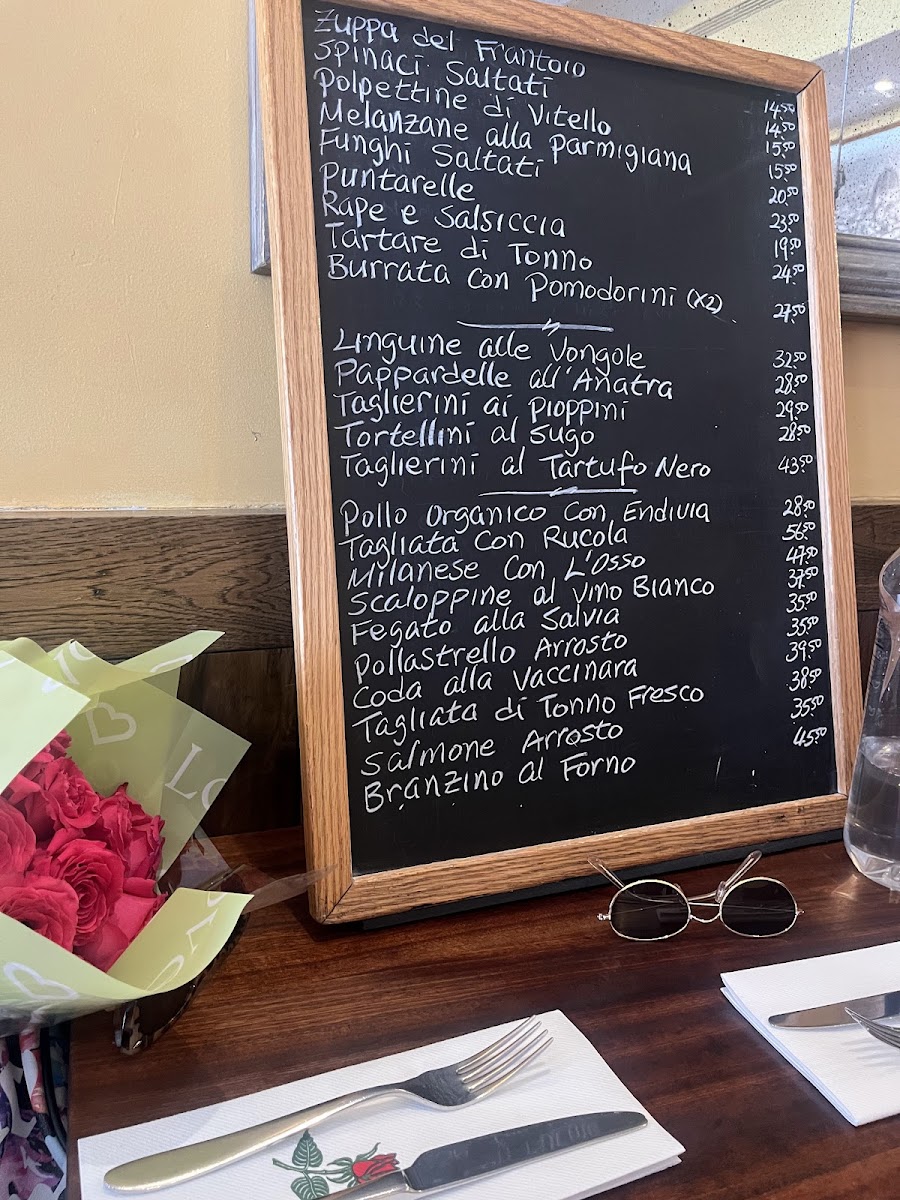 Zuppa del Frantoio 14.50
Spinaci Saltati 14.50
Polpettine di Vitello 15.50
Melanzane alla Parmigiana 15.50
Funghi Saltati 20.50
Puntarelle 23.50
Rape e Salsiccia 19.50
Tartare di Tonno 24.50
Burrata con Pomodorini (x2) 27.50
Linguine alle Vongole 32.50
Pappardelle all'Anatra 28.50
Taglierini ai Pioppini 29.50
Tortellini al Sugo 28.50
Taglierini al Tartufo Nero 43.50
Pollo Organico Con Endivia 28.50
Tagliata Con Rucola 56.50
Milanese Con L'Osso 47.50
Scaloppine al Vino Bianco 37.50
Fegato alla Salvia 35.50
Pollastrello Arrosto 35.50
Coda alla Vaccinara 39.50
Tagliata di Tonno Fresco 38.50
Salmone Arrosto 35.50
Branzino al Forno 45.50